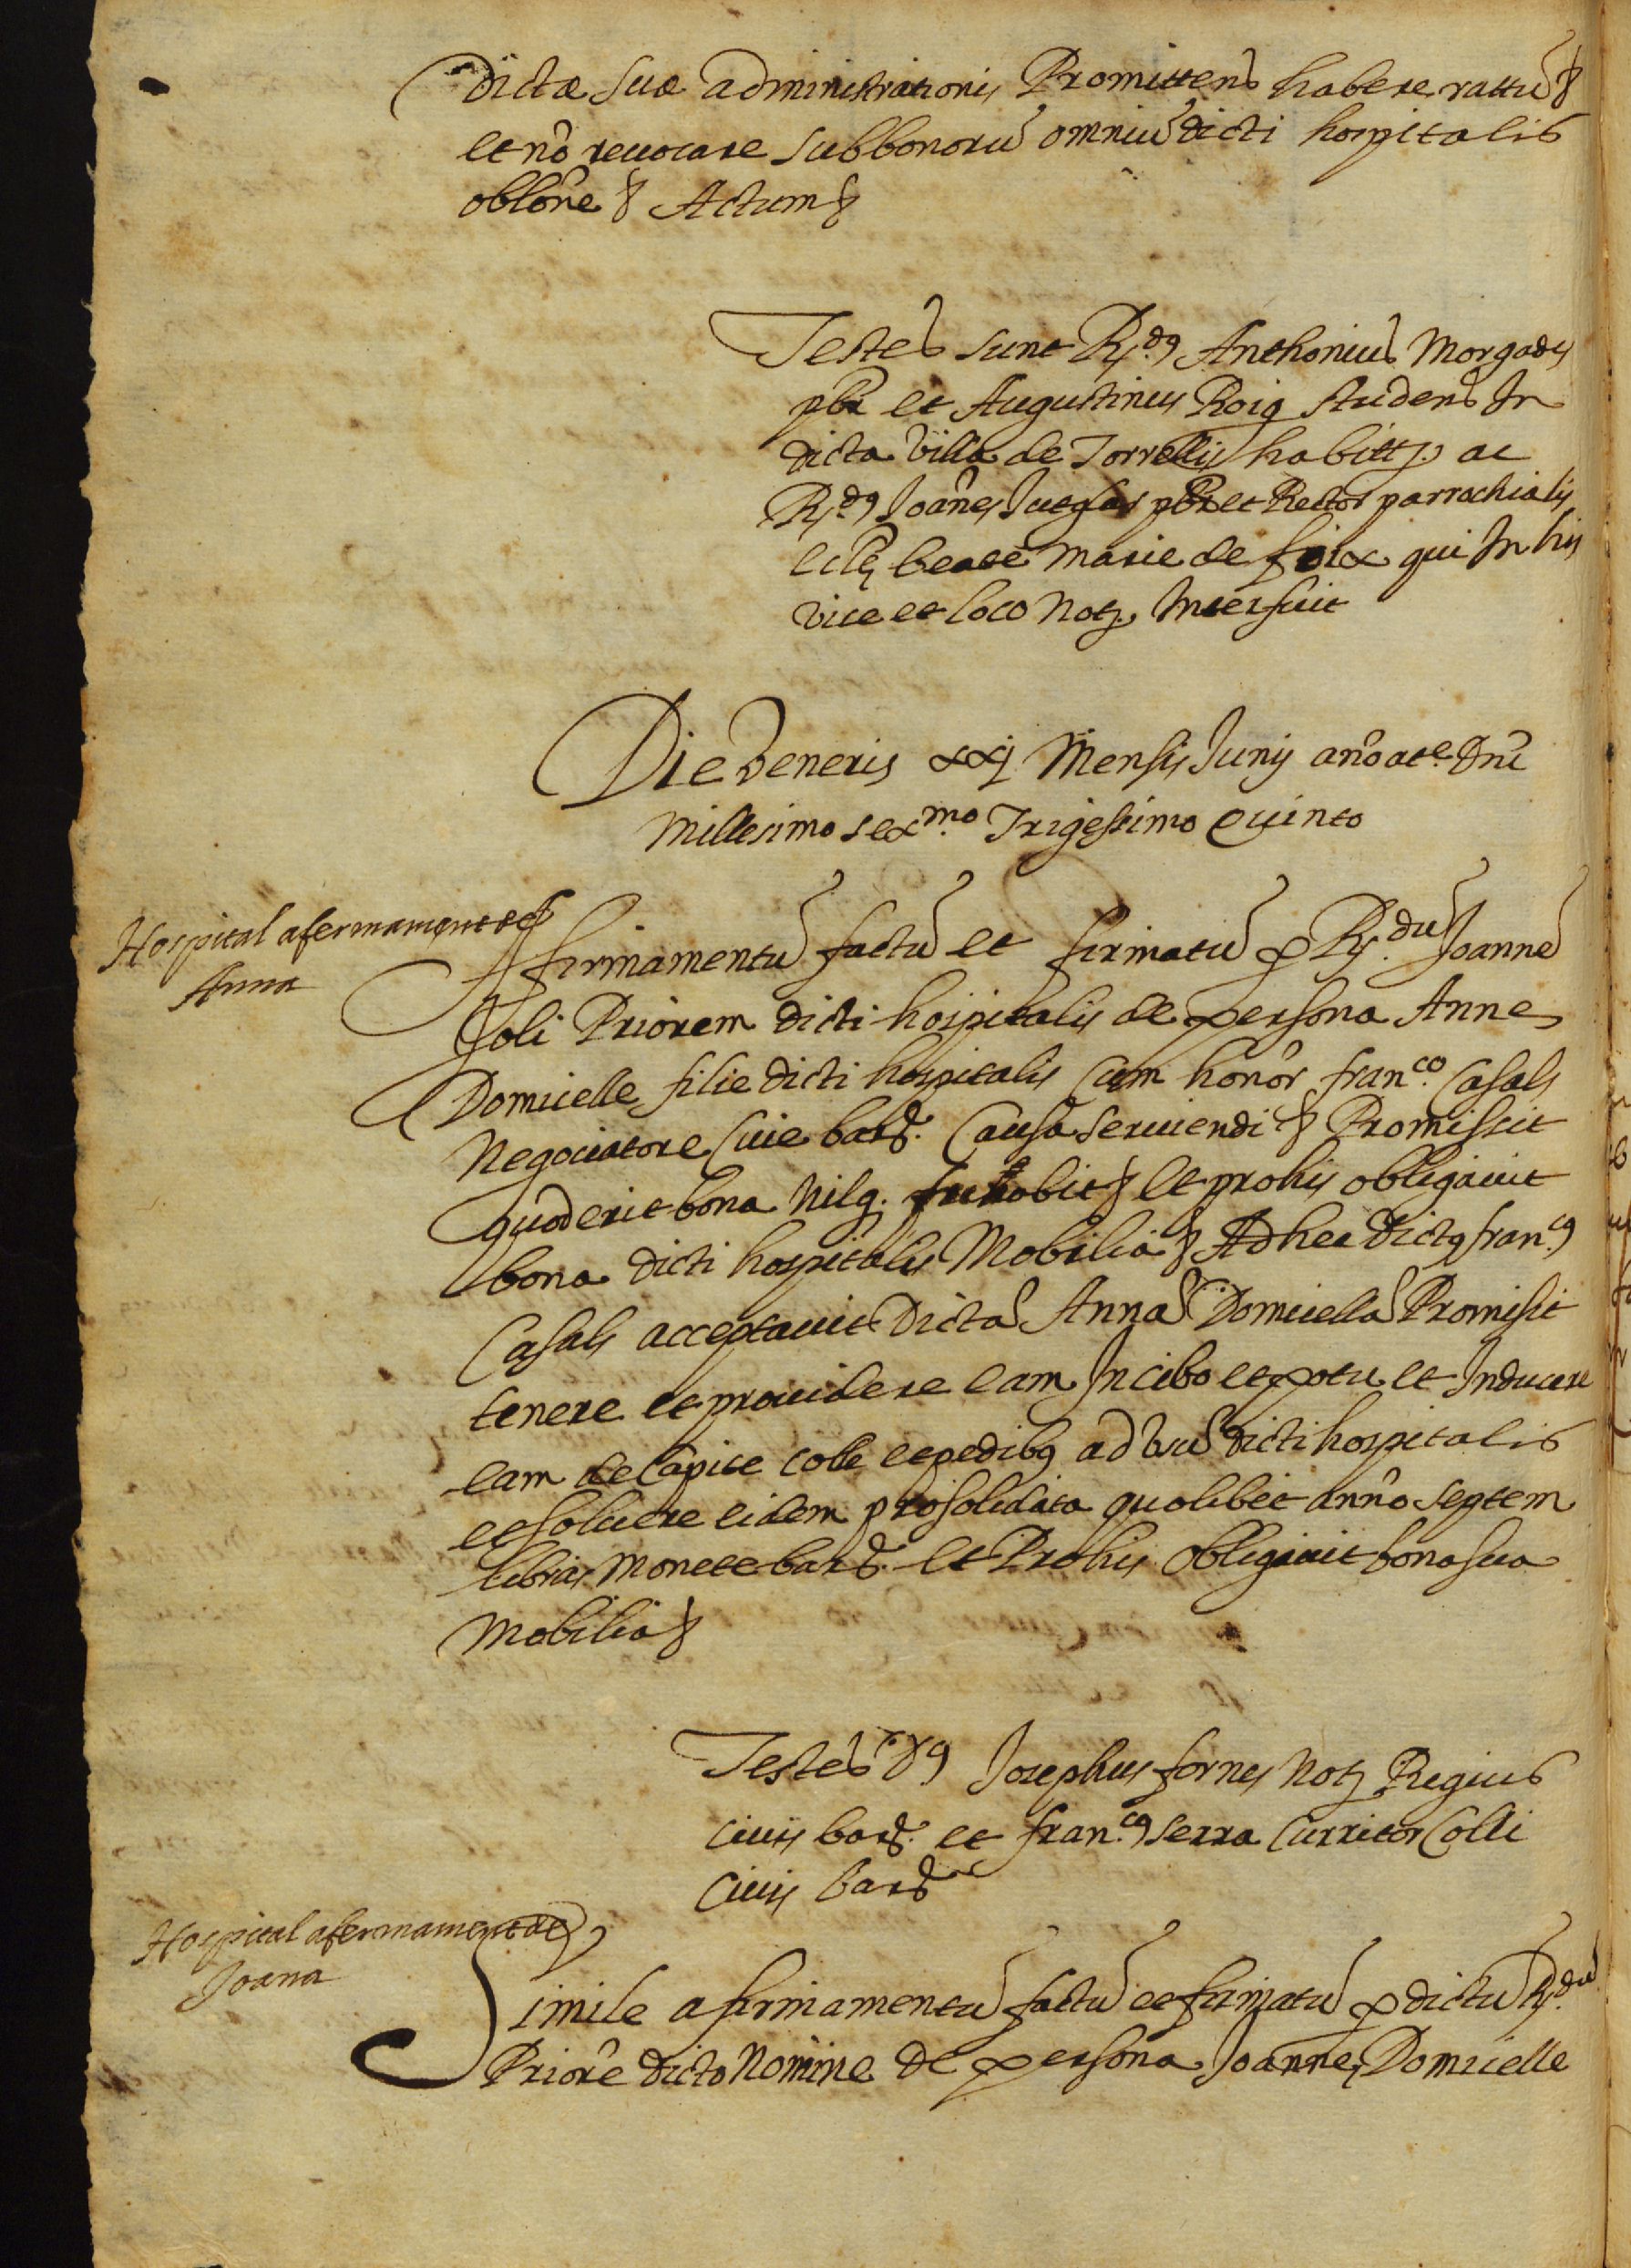 dictæ suæ administrationis Promittens habere rattũ &
et nõ reuocare sub bonorũ omniũ dicti hospitalis
oblõne & Actum &
Testes sunt R.dus Anthonius Morgades
pbr̃ et Augustinus Roig studens In
dicta villa de Torrellis habitt. ac
R.dus Joañes pbr̃ et Rector parrochialis
eclẽ beate Marie de foix qui In his
vice et loco Not. Interfuit
Die Veneris xxj Mensis Junij año a te. Dñi
Millesimo sex.mo Trigessimo Quinto
Hospital afermament de
Anna
Afirmamentũ factũ et firmatũ p R.dũ Joannẽ
Soli Priorem dicti hospitalis de persona Anne
Domicelle filie dicti hospitalis cum honor̃ fran.co Casals
Negociatore ciue barñ. Causa seruiendi & Promissit
quod erit bona nilq. furabit & Et pro his obligauit
bona dicti hospitalis Mobilia & Ad hec dictus fran.cus
Casals acceptauit dictã Annã Domicellã Promisit
tenere et prouidere eam In cibo et potu et Inducere
eam de Capite colle et pedibus ad vsũ dicti hospitalis
et soluere eidem pro solidata quolibet anno septem
libras Monete barñ. et Pro his obligauit bona sua
Mobilia &
Testes Dus Josephus fornes Not. Regius
ciuis barñ. et fran.cus serra curritor Colli
Ciuis barñ
Hospital afermament de
Joana
Simile afirmamentũ factũ et firmatũ p dictũ R.dũ
Priorẽ dicto Nomine de persona Joanne Domicelle